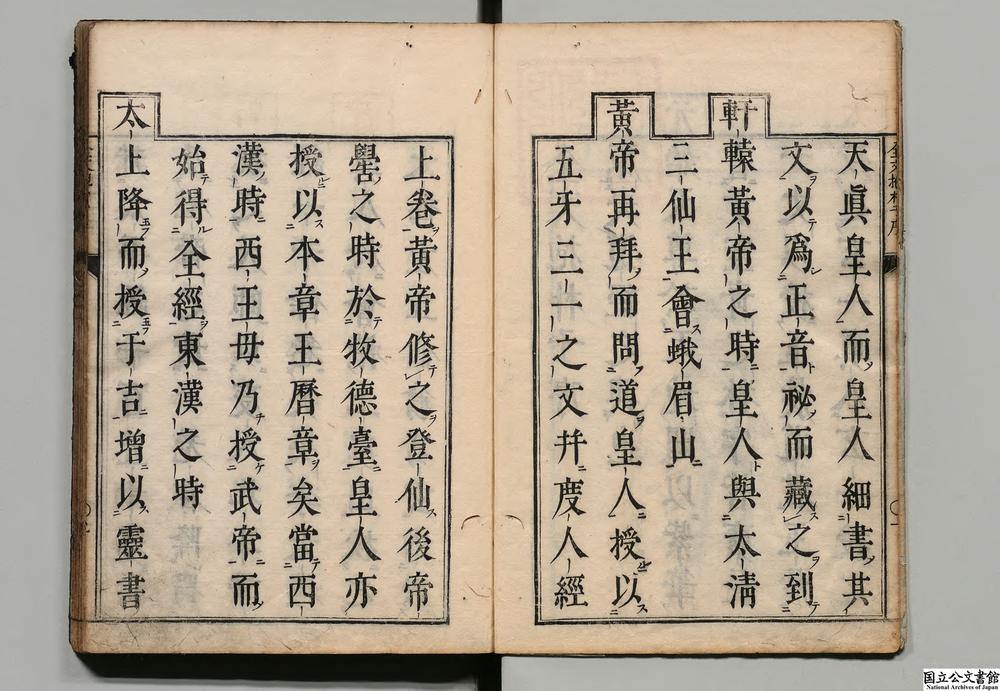 天眞皇人而皇人細書其
文以爲正音祕而藏之到
軒轅黃帝之時皇人與太清
三仙王會蛾眉山
黃帝再拜而問道皇人授以
五牙三一之文幷度人經
上卷黃帝修之登仙後帝
嚳之時於牧德臺皇人亦
授以本章王曆章矣當西
漢時西王母乃授武帝而
始得全經東漢之時
太上降而授于吉增以靈書
国立公文書館
National Archives of Japan